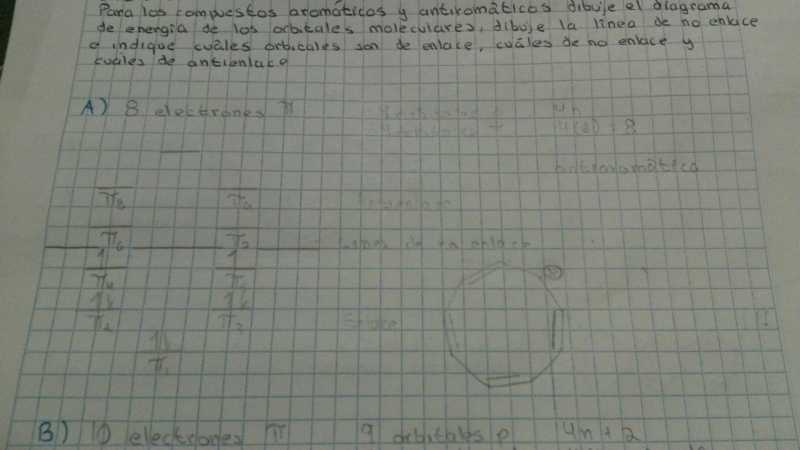 Para los compuestos aromáticos y antiromáticos dibuje el diagrama
de energía de los orbitales moleculares, dibuje la línea de no enlace
e indique cuáles orbitales son de enlace, cuáles de no enlace y
cuáles de antienlace
A) 8 electrones π
4n
4(2) = 8
antiaromático
π8 π9
π6 π7
Línea de no enlace
π4 π5
π2 π3
Enlace
π1
B) 10 electrones π 9 orbitales p 4n+2